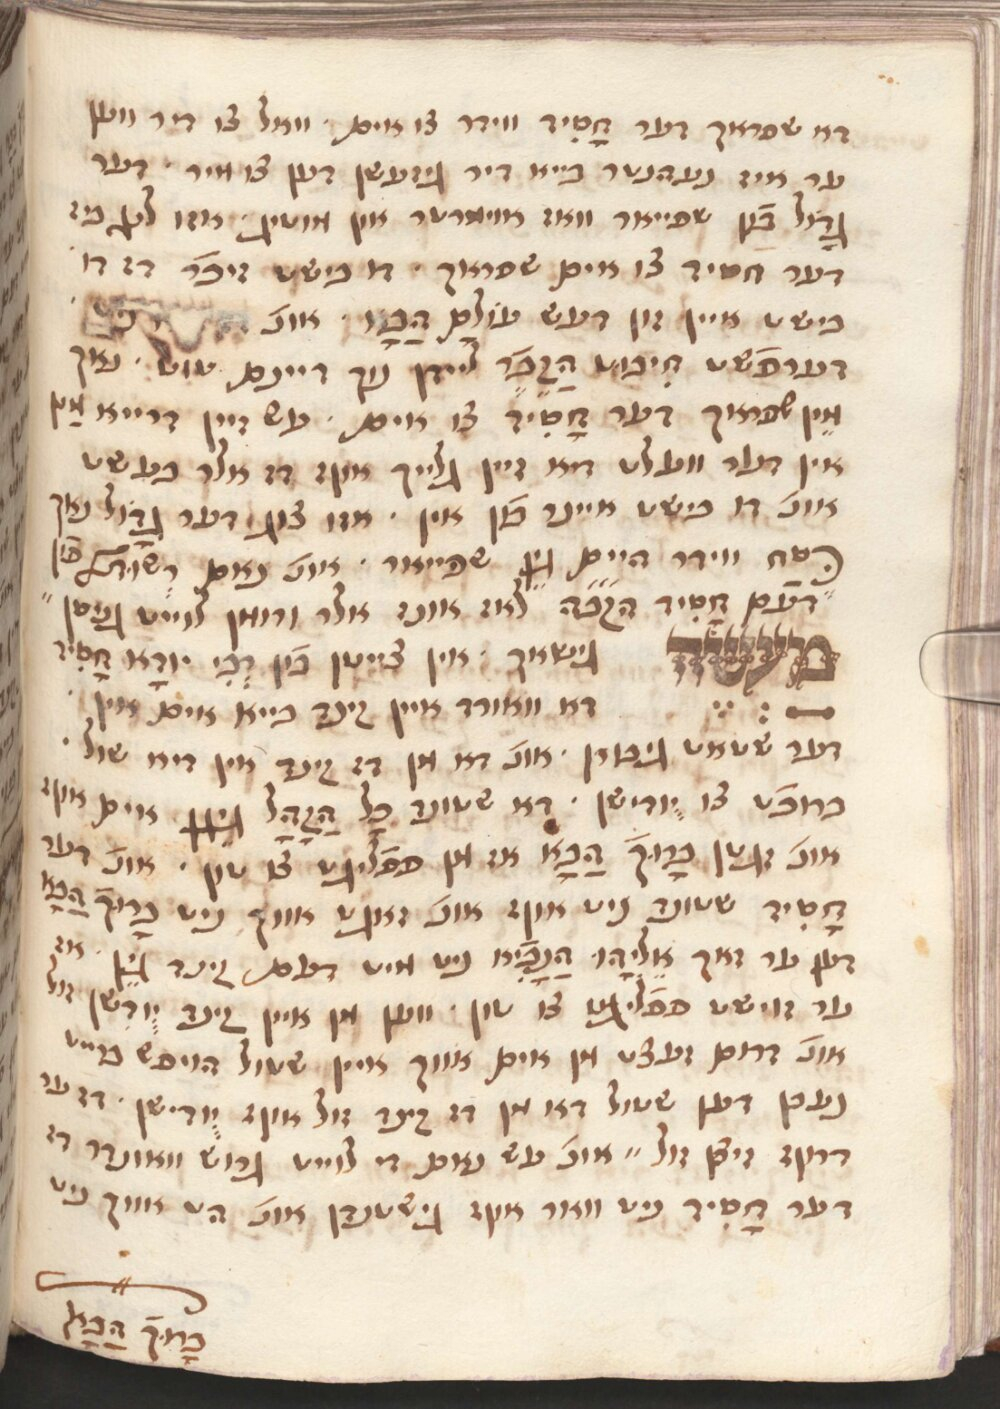 דא שפראך דער חָסִיד ווידר צו אים ׳ וואל צו דיר ווען
ער איז נעהנטר בייא דיר גיזעסן דען צו מיר ׳ דער
גָדוֹל פֿון שפייאר וואז אויארטר אין אוטיג ׳ אזו
דער חסיד צו אים שפראך ׳ דו בישט זיכֿר דז דו
בישט איין זון דעש עוֹלָם הַבָא ׳ אונ׳
דערפֿשט חִיבוט הַקֶבֶר לײדן נוך דיינם טוט ׳ נאך
מֵין שפראך דער חָסִיד צו אים ׳ עש זיין דרייא מַן
אין דער וועלט דיא זיין גלייך אונ׳ דז אלר בעשט
אונ׳ דו בישט איינר פֿון אין ׳ אזו צוג דער גָדוֹל נאך
פסח ווידר היים גין שפייאר ׳ אונ׳ נאם רְשׁוּת פֿון
דעם חָסִיד הקבה לאז אונז אלר
מעשה גישאך ׳ אין צייטן פֿון רַבִּי יודָא חָסִיד
דא ווארד איין קינד בייא אים אין
דער שטאט גיבורן ׳ אונ׳ דא מן דז קינד אין דיא שול ׳
ברוכֿט צו יֽוּדישן ׳ דא שטונד כָל הַקָהָל גיגן אים אוף
אונ׳ זגטן בָרוּךְ הַבָא אז מן פפֿליגט צו טון ׳ אונ׳ דער
חָסִיד שטונד ניט אוף אונ׳ זאגט אווך ניט בָרוּךְ הַבָא
דען ער זאך אֵלִיָהוּ הַנָבִיא ניט מיט דעם קינד גֵין ׳ אז
ער זוישט פפֿליגט צו טון ׳ ווען מן איין קינד יֽוּדִישן זול
אונ׳ דרום זעצט מן אים אווך איין שטול הויפש בייט
נעבן דען שטול דאו מן דז קינד זול אוף יֽוּדישן ׳ דז ער
דרוף זיצן זול ״ אונ׳ עש נאם די לוייט גרוש וואונדר דז
דער חָסִיד ניט וואר אוף גישטנדן אונ׳ הט אווך ניט
בָרוּךְ הַבָא